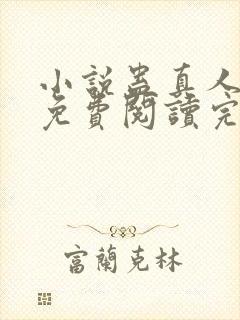 小説蠱真人
免費閱讀完
富蘭克林